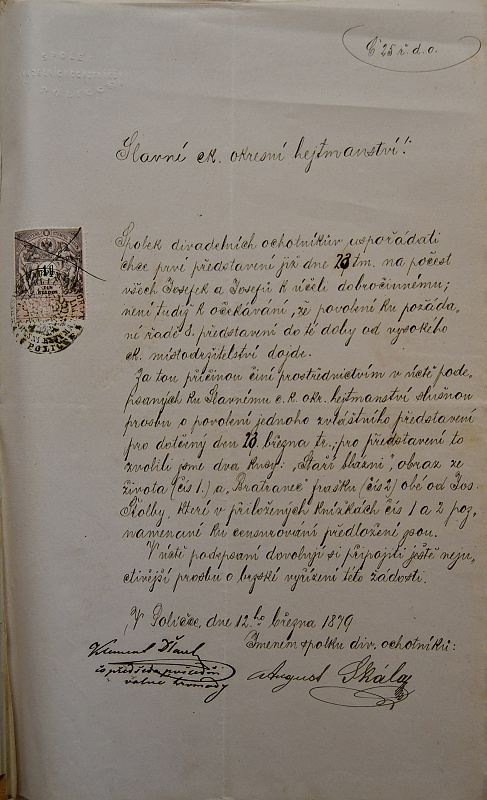 Č 25 ř. d. o.
Slavné ck. okresní hejtmanství!
Spolek divadelních ochotníkův uspořádati
chce prvé představení již dne 23 tm. na počest
všech Josefek a Josefů k účeli dobročinnému;
není tudíž k očekávání, že povolení ku požáda
né řadě 8. představení do té doby od vysokého
ck. místodržitelství dojde.
Za tou příčinou činí prostřednictvím v úctě pode-
psaných ku Slavnému c. k. okr. hejtmanství slušnou
prosbu o povolení jednoho zvláštního představení
pro dotčený den 23 března tr.; pro představení to
zvolili jsme dva kusy: „Staří blázni", obraz ze
života (čís 1.) a „Bratranec" frašku (čís 2) obě od Jos
Štolby, které v přiložených knížkách čís 1 a 2 poz,
namenané ku censurování předložené jsou.
V úctě podepsaní dovolují si připojiti ještě nejuc-
tivější prosbu o brzské vyřízení této žádosti.
V Poličce, dne 12ho března 1879
Jmenem spolku div. ochotníků:
Klement
co předseda
valné hromady
August Skála
SPOLEK